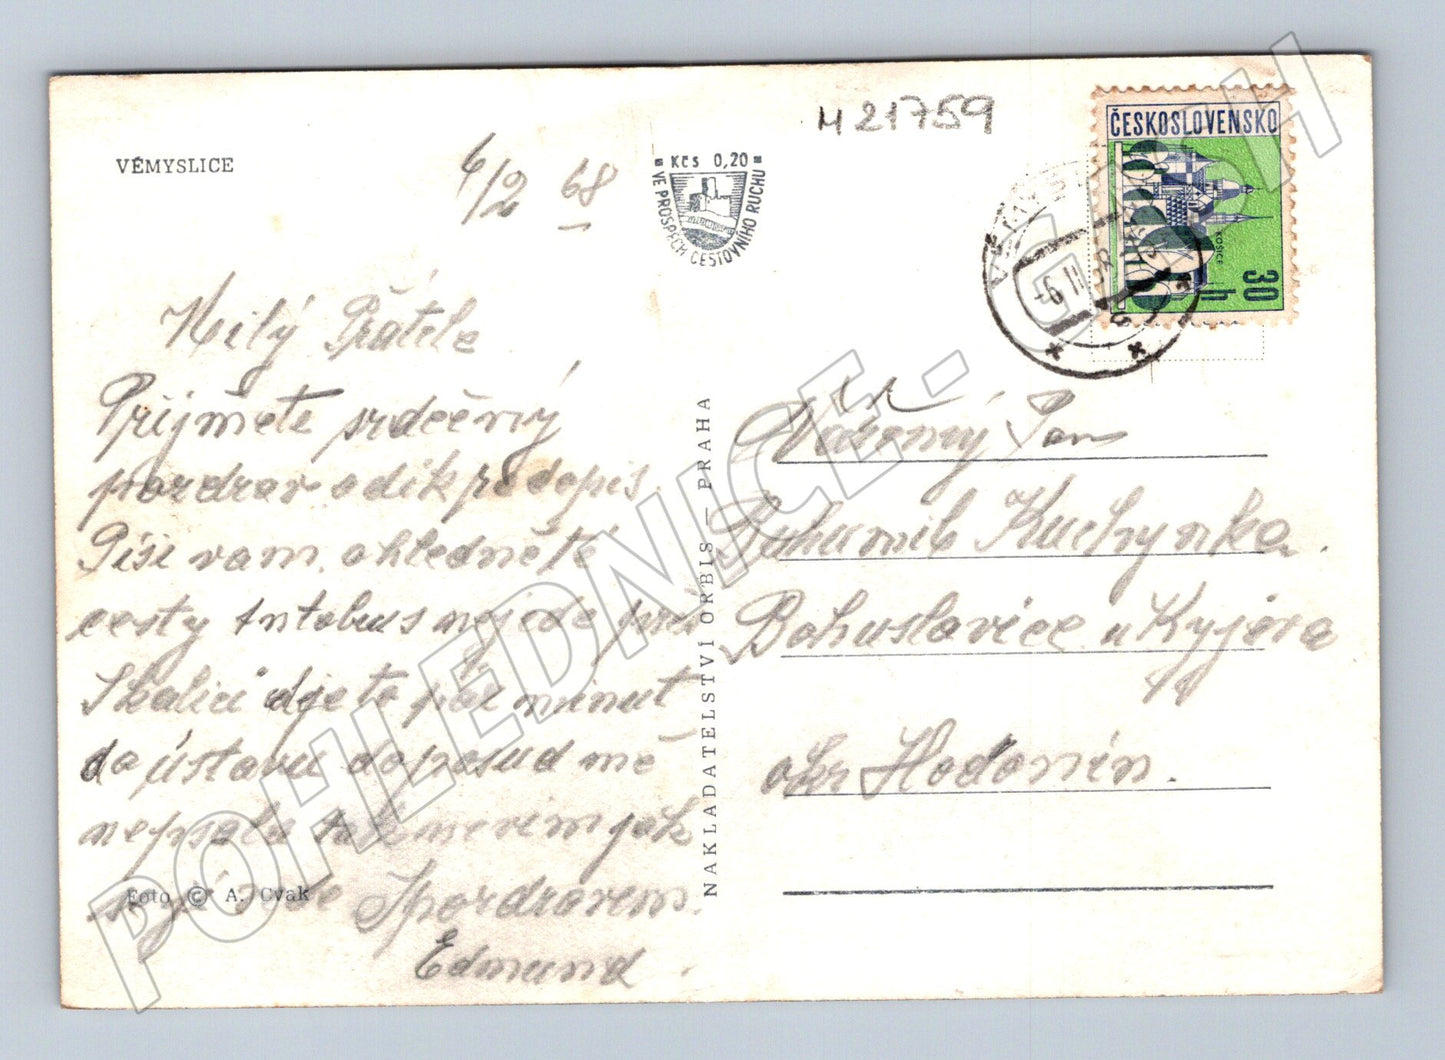 VÉMYSLICE
6/2 68
Kčs 0,20
VE PROSPĚCH CESTOVNÍHO RUCHU
M 21759
ČESKOSLOVENSKO
KOŠICE
30 h
-6.II.68
Milý Přátele
Přijměte srdečný
pozdrav a dík za dopis.
Píši vam. ohledně té
cesty Autobus nejede přes
Skalici dje to pár minut
do ústavu doposud mě
nepsali tak nevim jak
Spozdravem.
Edmund.
Foto © A. Cvak
NAKLADATELSTVÍ ORBIS — PRAHA
Vážený Pan
Bohumil Kuchynka.
Bohuslavice u Kyjova
okr Hodonín.
POHLEDNICE-GALECH